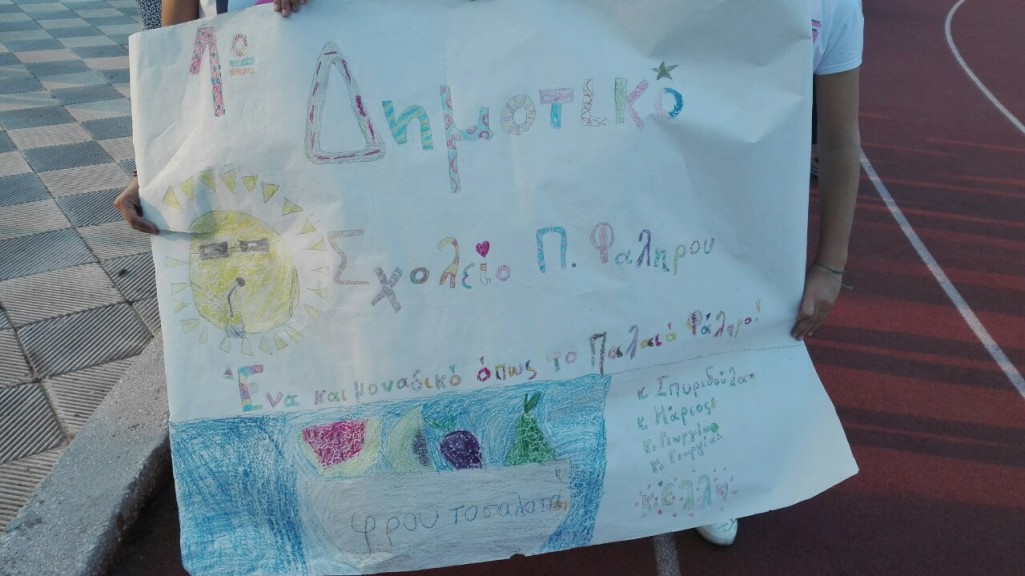 1ο Δημοτικό
Σχολείο Π. Φαληρου
Ένα και μοναδικό όπως το Παλαιό Φάληρο!
κ. Σπυριδούλα
κ. Μάριος
κ. Γεωργία
κ. Γεωργία
κ. Έλλη
φρουτοσαλάτα